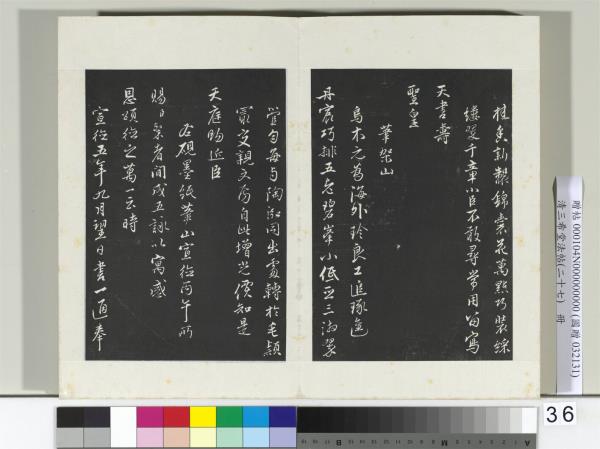 桂香新製錦囊花萬點巧裝綵
縷雙千立軍小臣不敢尋常用留寫
天書壽
聖皇
筆架山
烏木之為海外珍良工追琢進
丹宸巧排五老碧峯小低亞三
管勾每與陶泓同出處轉於毛穎
最交親文房自此增光價知是
天庭賜近臣
右硯墨紙筆山宣德丙午所
賜日累者間成五詠以寓感
恩頌德之萬一云時
宣德五年九月望日書一通奉
贈帖 000104N000000000 (國贈 032131)
清三希堂法帖(二十七) 冊
36